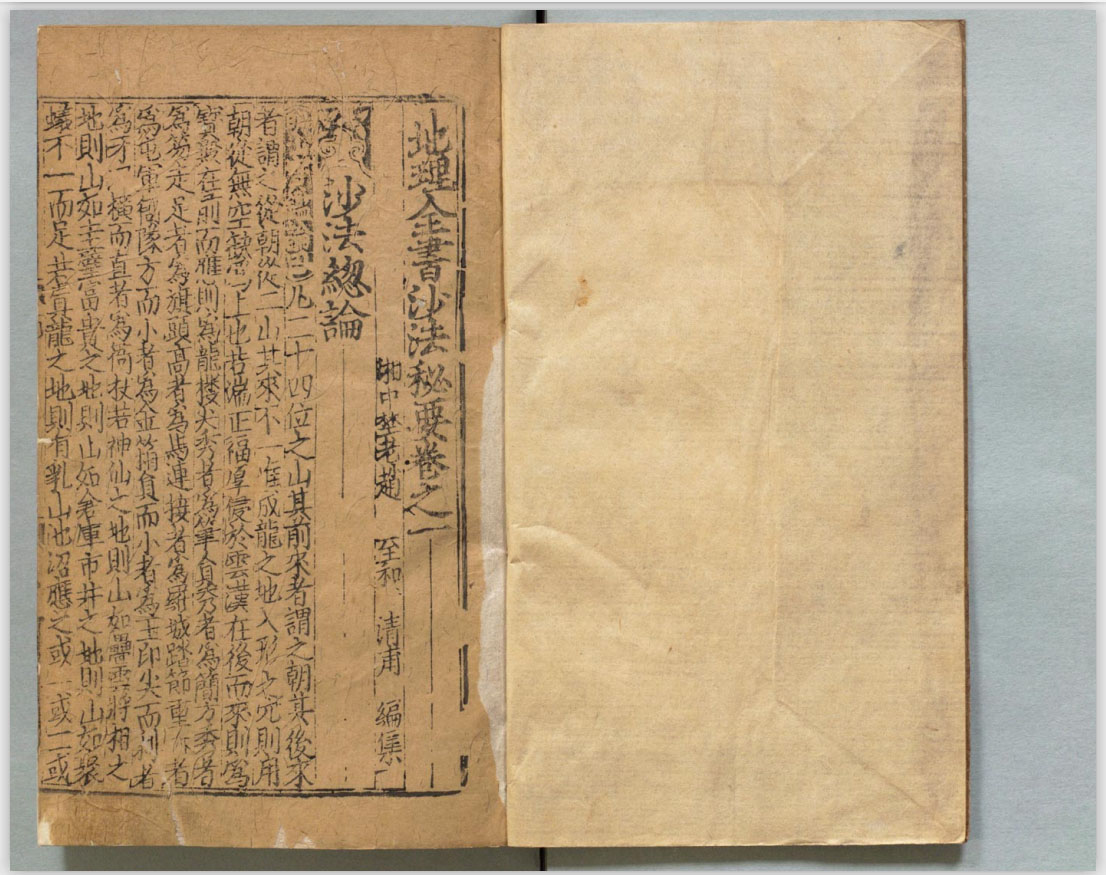 地理全書沙法秘要卷之一
湘中埜老趙 至和 清甫 編集
沙法緫論
凡二十四位之山其前來者謂之朝其後來
者謂之從朝從二山其來不一惟成龍之地入形之穴則用
朝從無空上也若湍正福厚侵於雲漢在後而來則為
寶殿在前而應則為龍樓尖秀者為筆員秀者為簡方秀者
為笏走足者為旗頭高者為馬連接者為羅城踏節重者
為屯軍隊方而小者為金箱員而小者為玉印尖而利者
為牙橫而直者為衙杖若神仙之地則山如疊雲將相之
地則山如圭璧富貴之地則山如倉庫市井之地則山如聚
蟻不一而足共真龍之地則有乳山池沼應之或一或二或